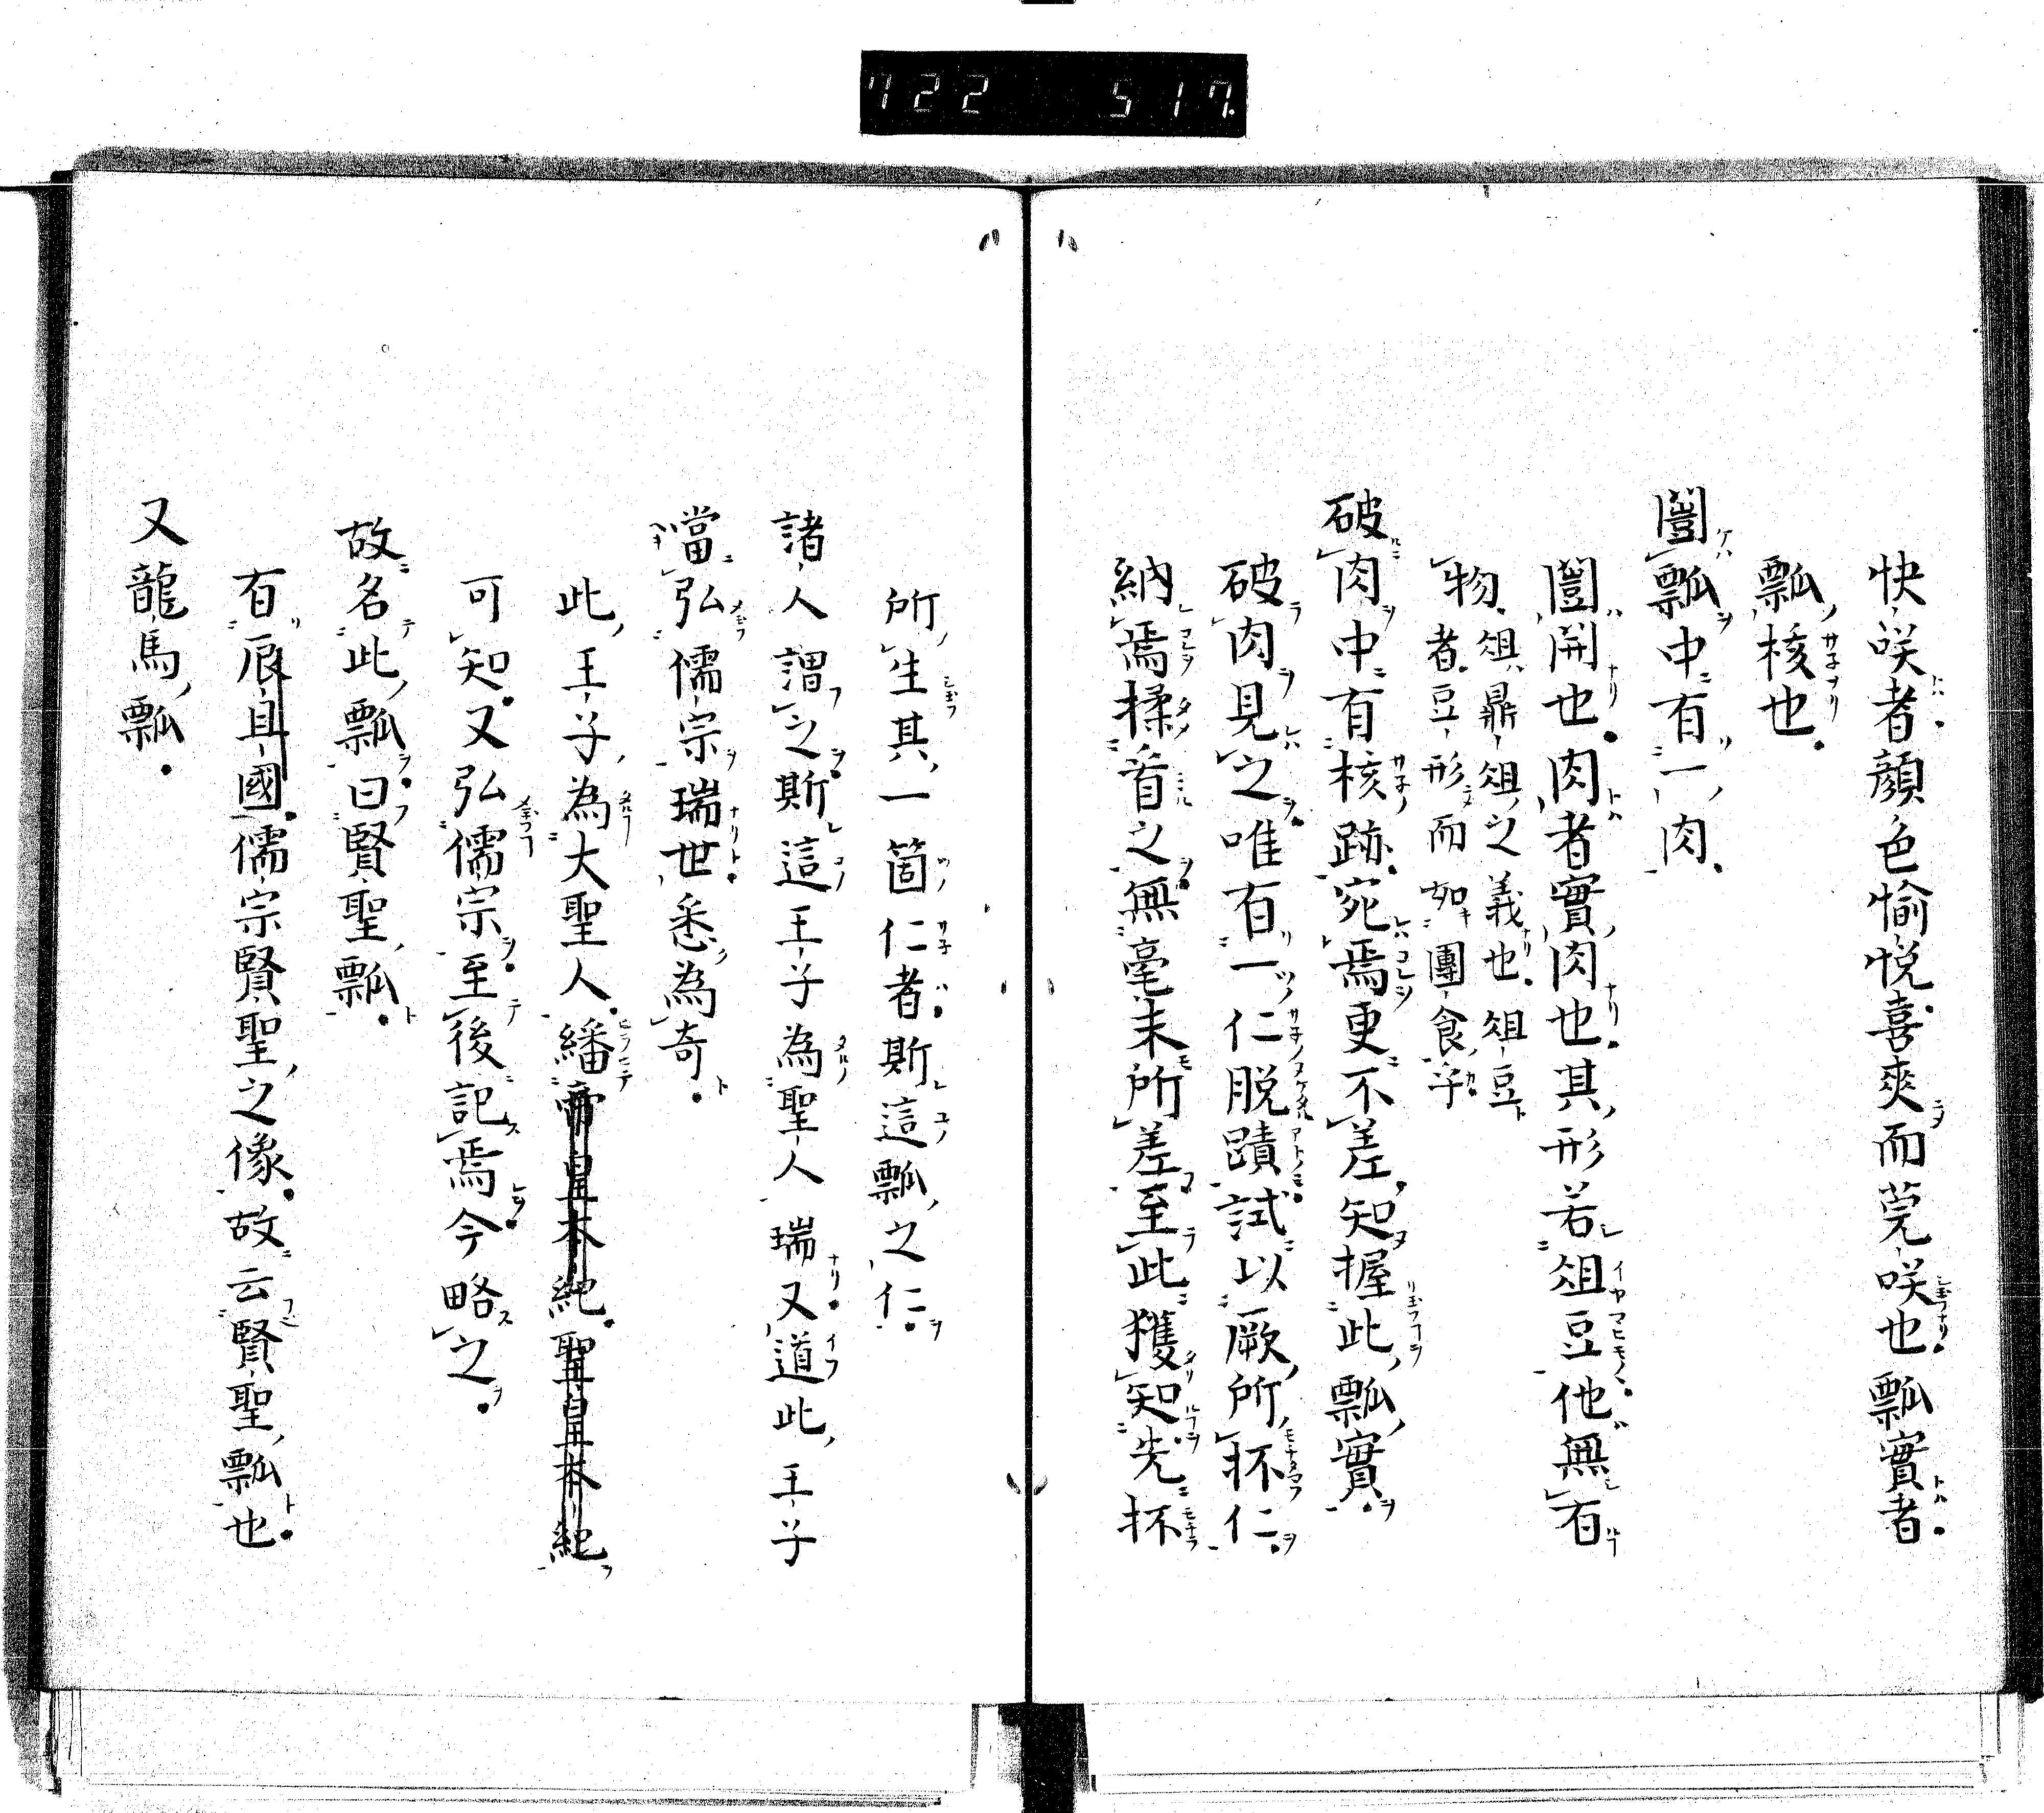 722 517
快咲者顔色愉悦喜爽而莞咲也瓢實者
瓢核也
闓瓢中有一肉
闓開也肉者實肉也其形若俎豆他無有
物俎鼎俎之義也俎豆
者豆形而如團食乎
破肉中有核跡宛焉更不差知握此瓢實
破肉見之唯有一仁脱蹟試以厥所抔仁
納焉揉首之無毫末所差至此獲知先抔
所生其一箇仁者斯這瓢之仁
諸人謂之斯這王子為聖人瑞又道此王子
當弘儒宗瑞世悉為奇
此王子為大聖人繙帝皇本紀聖皇本紀
可知又弘儒宗至後記焉今略之
故名此瓢曰賢聖瓢
有辰旦國儒宗賢聖之像故云賢聖瓢也
又龍馬瓢